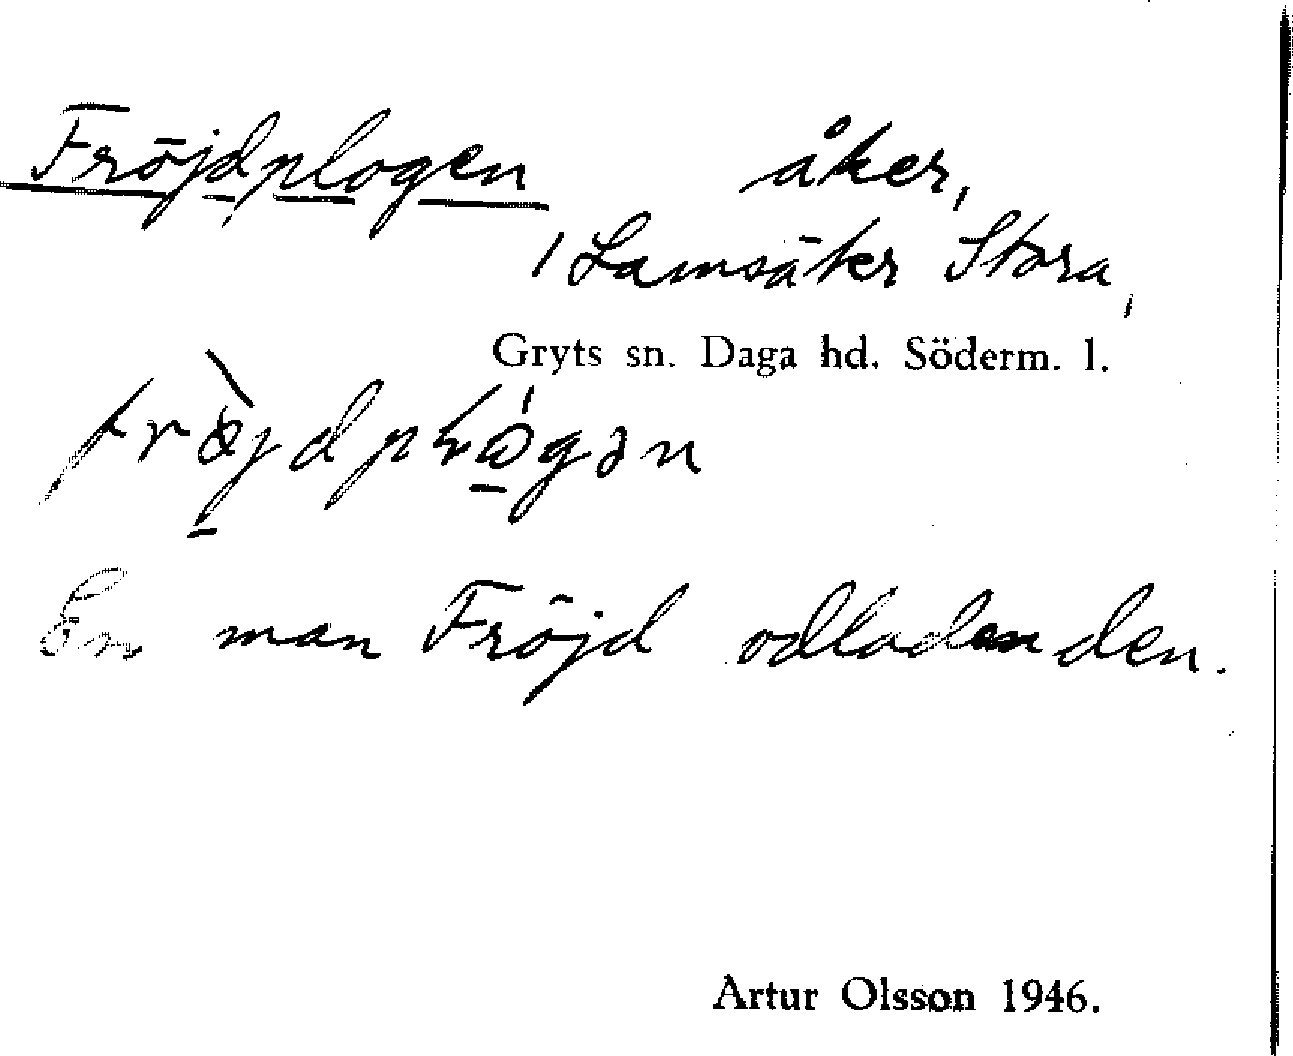 Fröjdplogen åker,
Lamsäker Stora,
Gryts sn. Daga hd. Söderm. l.
En man Fröjd odlade den.
Artur Olsson 1946.